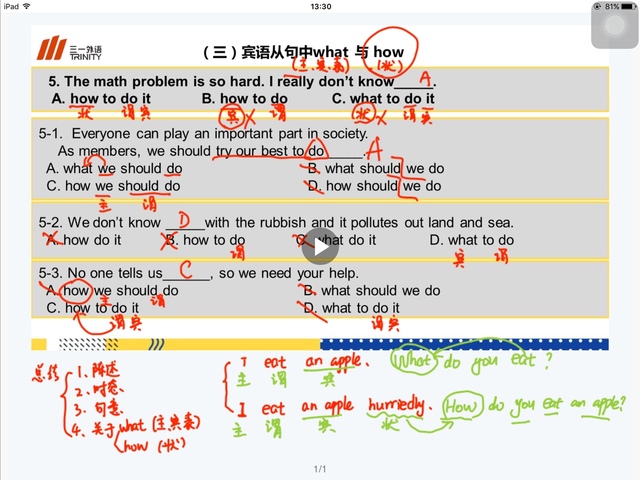 iPad
13:30
81%
三一外语
TRINITY
（三）宾语从句中what 与 how
(主.宾.表) (状)
5. The math problem is so hard. I really don't know_____. A
A. how to do it B. how to do C. what to do it
状 谓宾 宾 X 谓 状 X 谓宾
5-1. Everyone can play an important part in society.
As members, we should try our best to do _____. A
A. what we should do B. what should we do
C. how we should do D. how should we do
主 谓
5-2. We don't know __D__with the rubbish and it pollutes out land and sea.
A. how do it B. how to do C. what do it D. what to do
谓 宾 谓
5-3. No one tells us__C__, so we need your help.
A. how we should do B. what should we do
主 谓
C. how to do it D. what to do it
谓宾 谓宾
总结
1、陈述
2、时态
3、句意
4、关于what (主宾表)
how (状)
I eat an apple. What do you eat?
主 谓 宾
I eat an apple hurriedly. How do you eat an apple?
主 谓 宾 状
1/1